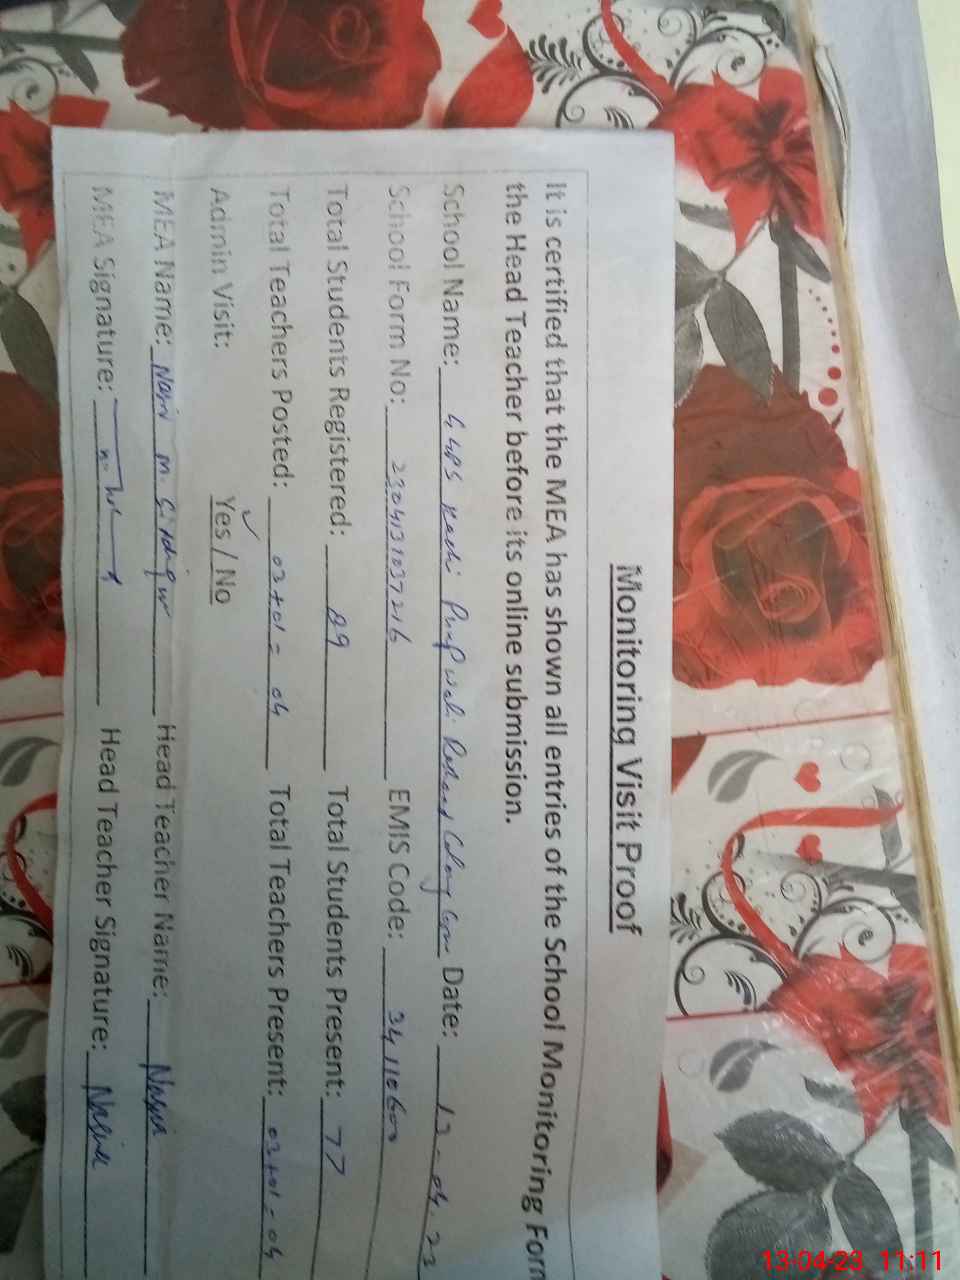 Monitoring Visit Proof
It is certified that the MEA has shown all entries of the School Monitoring Form
the Head Teacher before its online submission.
School Name: GGPS Kachi Pump Wali Colony Date: 13-04-23
School Form No: 230413037216 EMIS Code: 34110600
Total Students Registered: 89 Total Students Present: 77
Total Teachers Posted: 03+01=04 Total Teachers Present: 03+01-04
Admin Visit: Yes / No
MEA Name: M. Head Teacher Name:
MEA Signature: Head Teacher Signature:
13-04-23 11:11